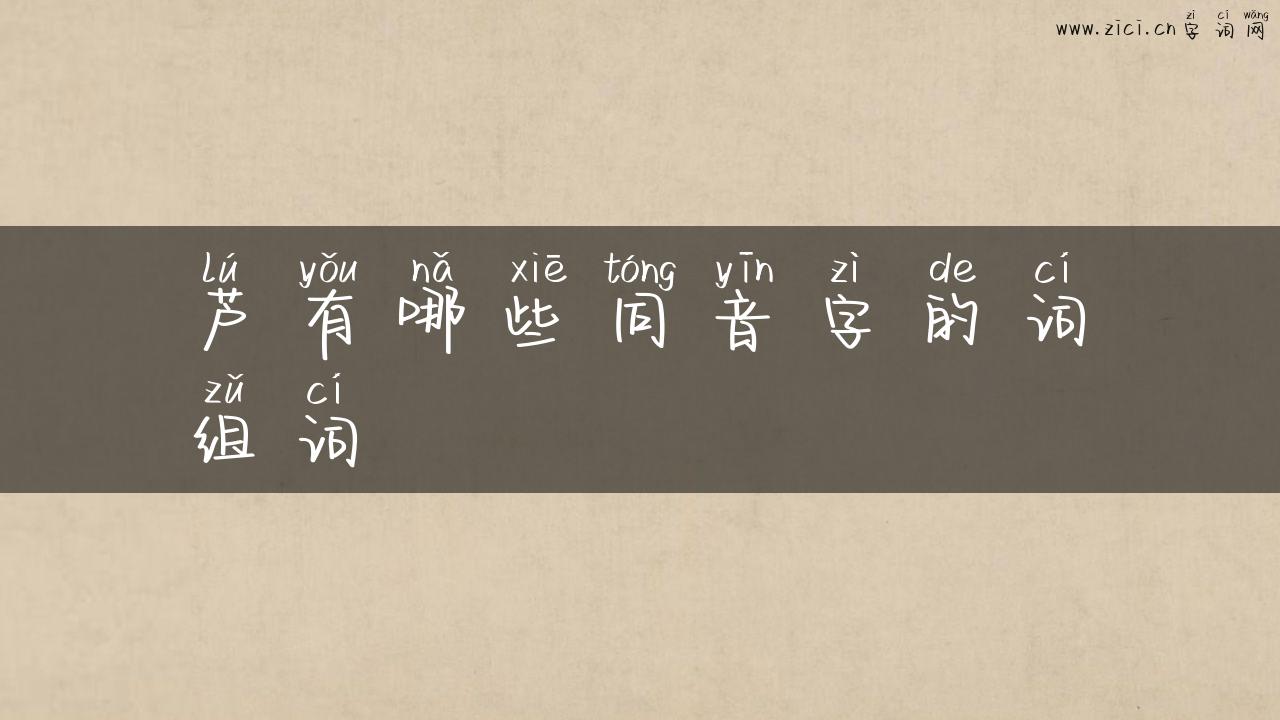 zì cí wǎng
www.zici.cn字词网
lú yǒu nǎ xiē tóng yīn zì de cí
芦有哪些同音字的词
zǔ cí
组词